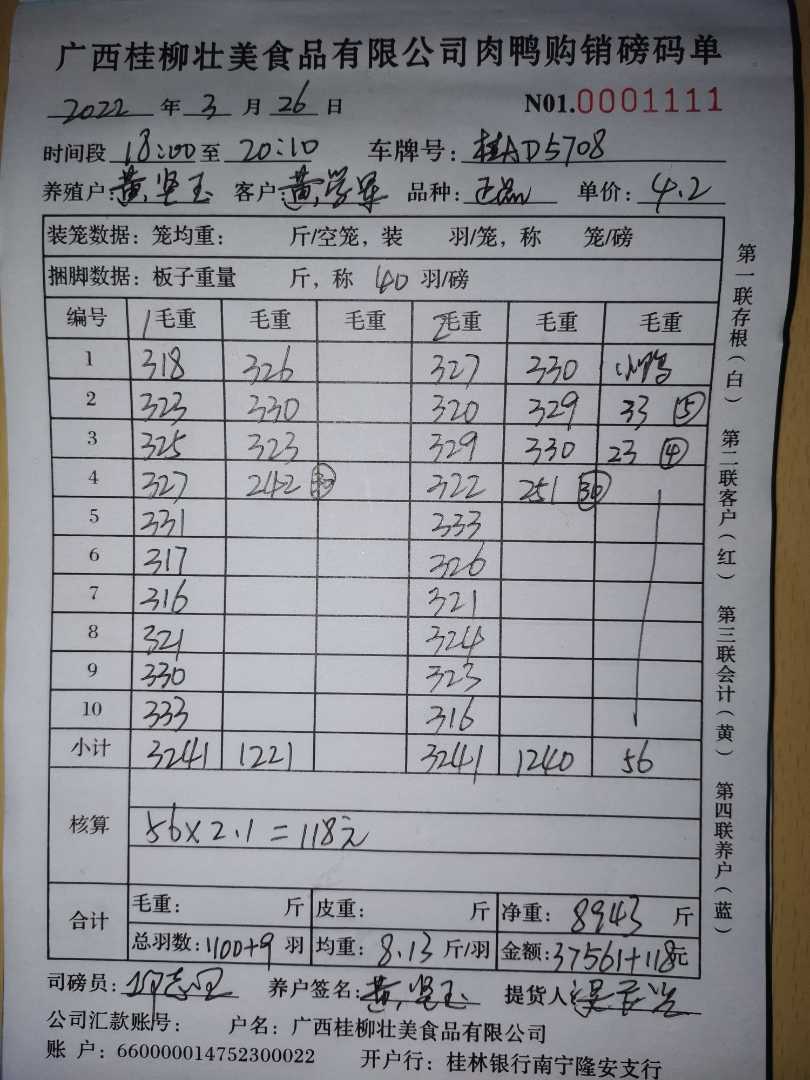 广西桂柳壮美食品有限公司肉鸭购销磅码单
2022 年 3 月 26 日 N01.0001111
时间段 18:00 至 20:10 车牌号: 桂AD5708
养殖户: 黄坚玉 客户: 黄学军 品种: 正品 单价: 4.2
装笼数据: 笼均重: 斤/空笼, 装 羽/笼, 称 笼/磅
捆脚数据: 板子重量 斤, 称 40 羽/磅
编号 1毛重 毛重 毛重 2毛重 毛重 毛重
1 318 326 327 330 小鸭
2 323 330 320 329 33 ⑤
3 325 323 329 330 23 ④
4 327 242 ㉚ 322 251 ㉚
5 331 333
6 317 326
7 316 321
8 321 324
9 330 323
10 333 316
小计 3241 1221 3241 1240 56
核算 56×2.1=118元
合计 毛重: 斤 皮重: 斤 净重: 8943 斤
总羽数: 1100+9 羽 均重: 8.13 斤/羽 金额: 37561+118元
司磅员: 养户签名: 黄坚玉 提货人:
公司汇款账号: 户名: 广西桂柳壮美食品有限公司
账 户: 660000014752300022 开户行: 桂林银行南宁隆安支行
第一联存根(白) 第二联客户(红) 第三联会计(黄) 第四联养户(蓝)